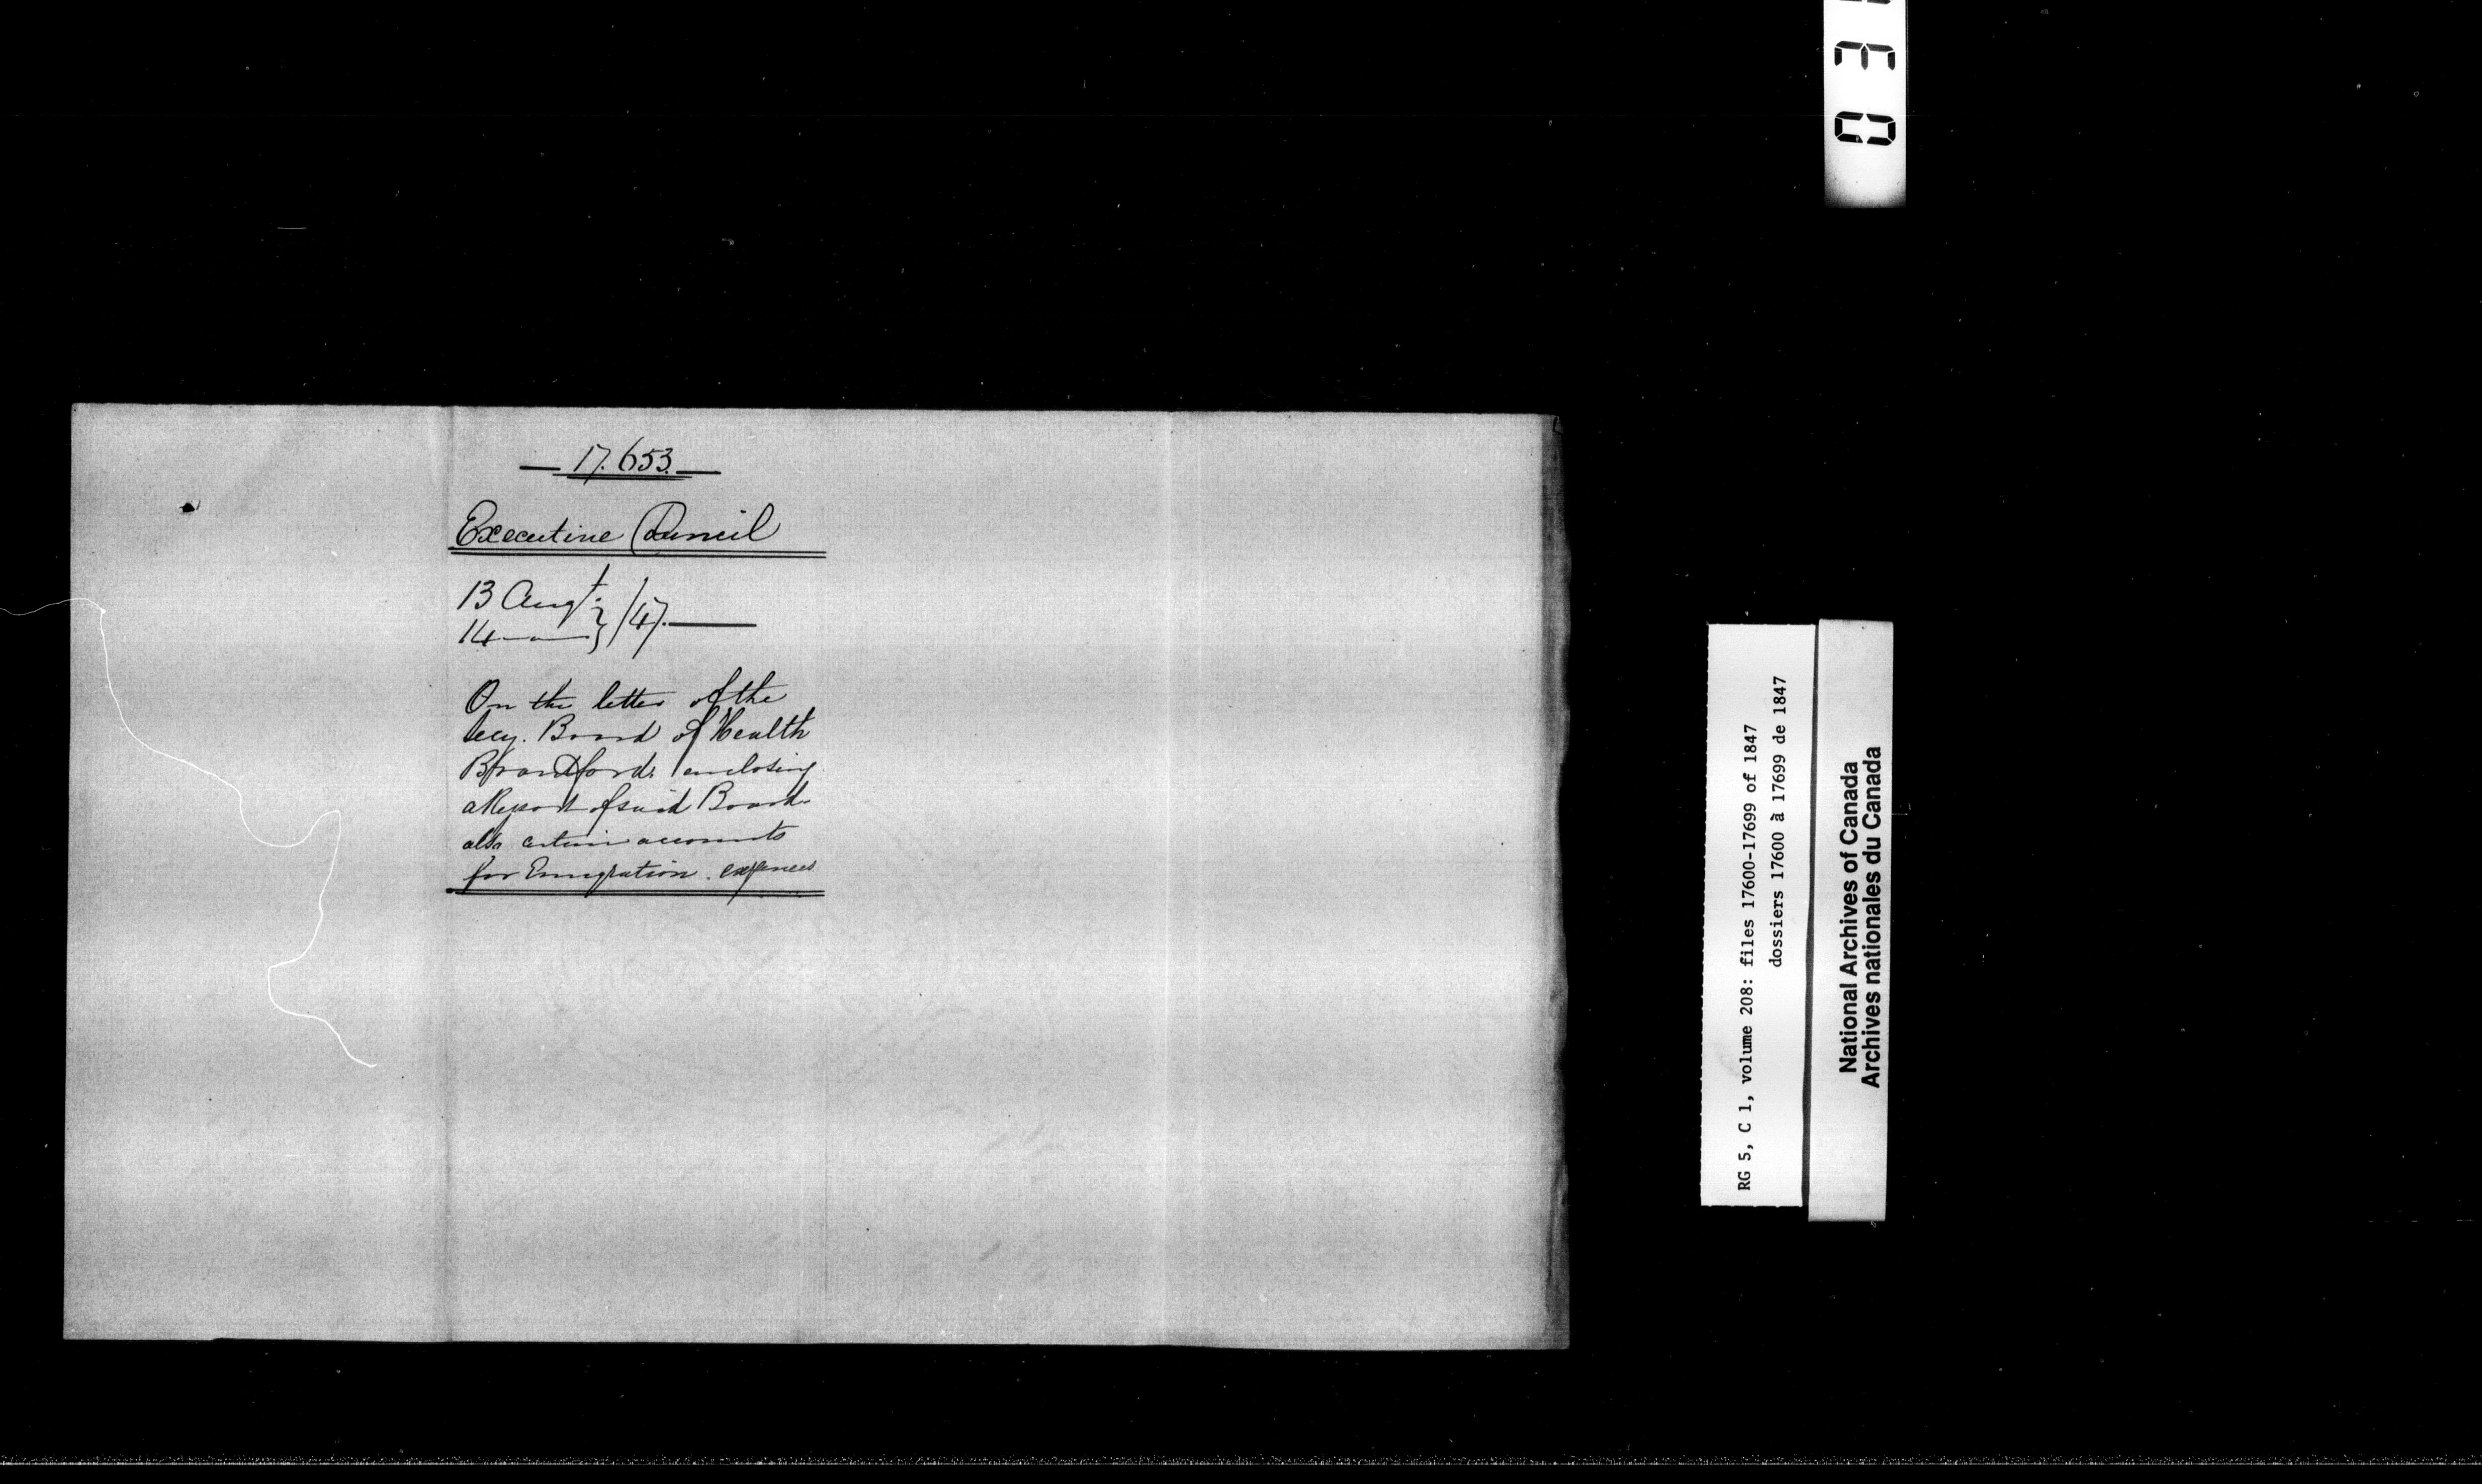 17.653.
Executive Council
13 Augt. } /47.
14 — " — }
On the letter of the
Secy. Board of Health
Brantford. enclosing
a Report of said Board.
also certain accounts
for Emigration expences
RG 5, C 1, volume 208: files 17600-17699 of 1847
dossiers 17600 à 17699 de 1847
National Archives of Canada
Archives nationales du Canada
03